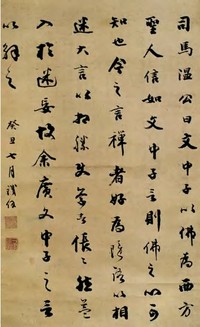 司馬温公曰文中子以佛為西方
聖人信如文中子言則佛之心可
知也今之言禪者好為隱語以相
迷大言以相勝使學者倀倀然益
入於迷妄故余廣文中子之言
以解之
癸丑七月